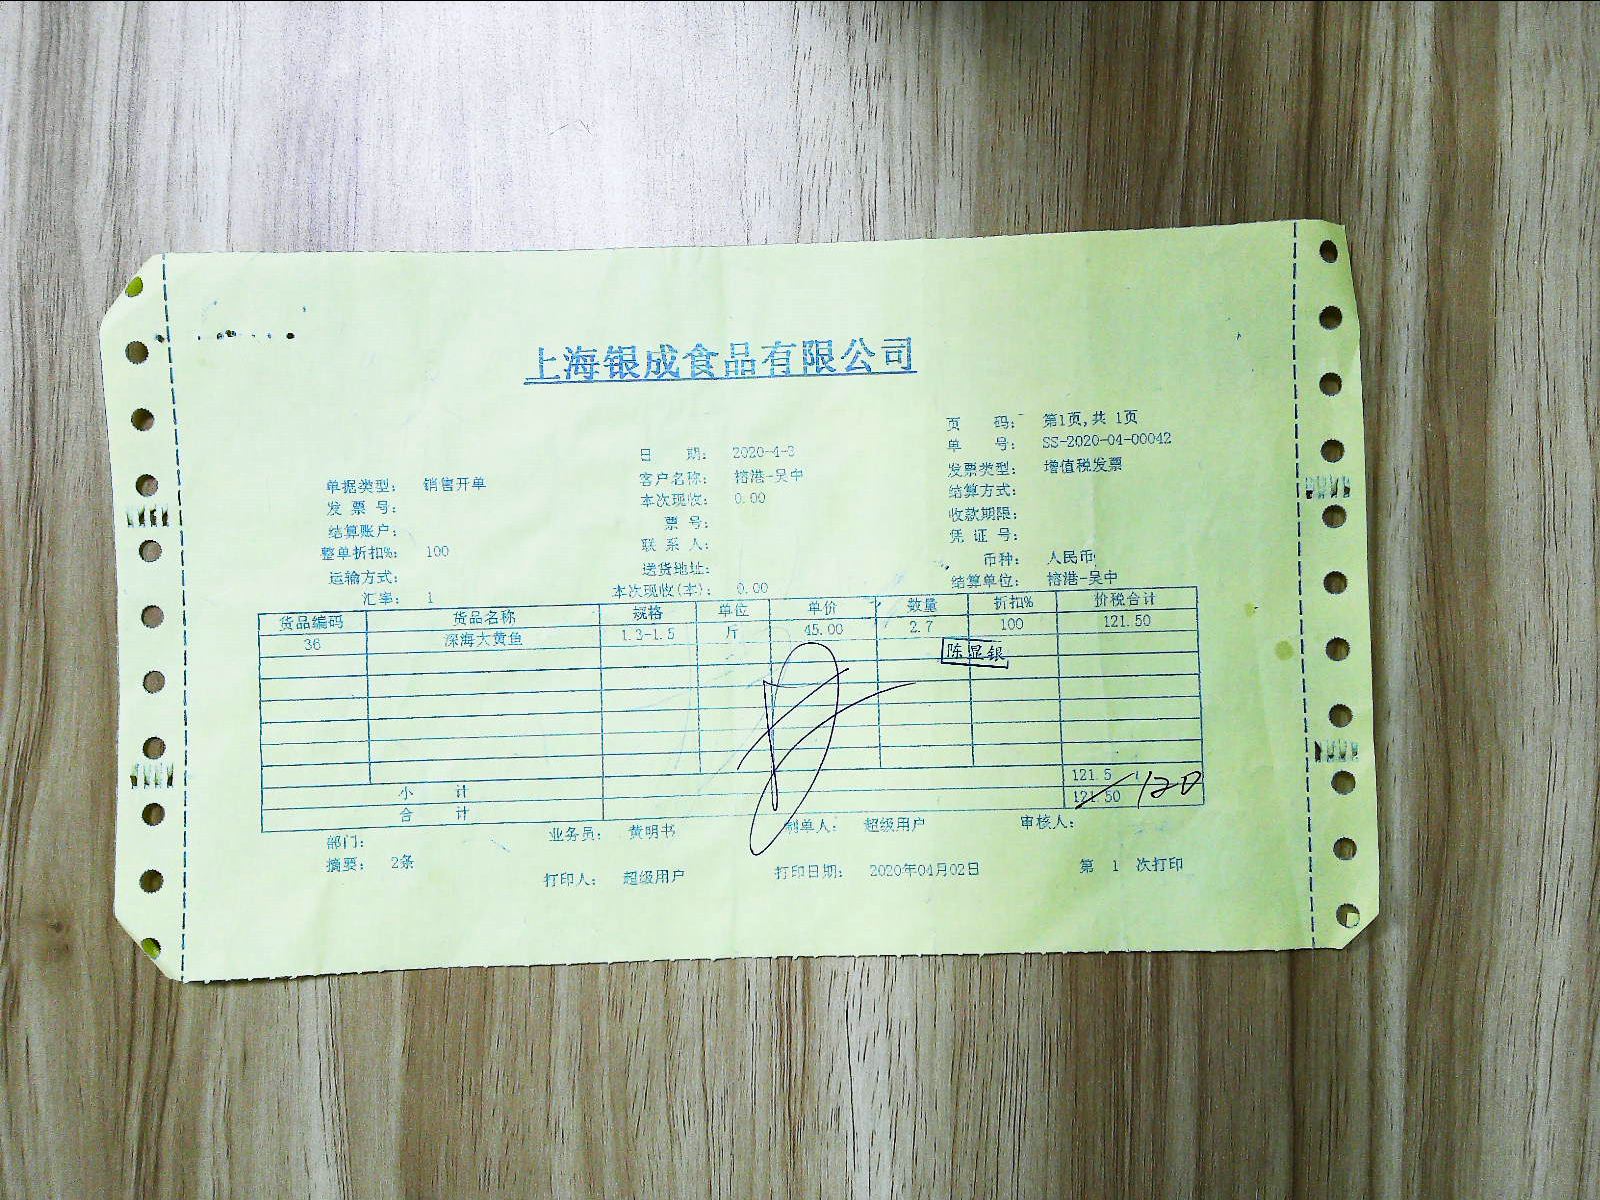 上海银成食品有限公司
页 码： 第1页,共 1页
日 期： 2020-4-3 单 号： SS-2020-04-00042
单据类型： 销售开单 客户名称： 榕港-吴中 发票类型： 增值税发票
发 票 号： 本次现收： 0.00 结算方式：
结算账户： 票 号： 收款期限：
整单折扣%： 100 联 系 人： 凭 证 号：
运输方式： 送货地址： 币种： 人民币
汇率： 1 本次现收(本)： 0.00 结算单位： 榕港-吴中
货品编码 货品名称 规格 单位 单价 数量 折扣% 价税合计
36 深海大黄鱼 1.3-1.5 斤 45.00 2.7 100 121.50
陈显银
小 计 121.5
合 计 121.50 120
部门： 业务员： 黄明书 制单人： 超级用户 审核人：
摘要： 2条 打印人： 超级用户 打印日期： 2020年04月02日 第 1 次打印